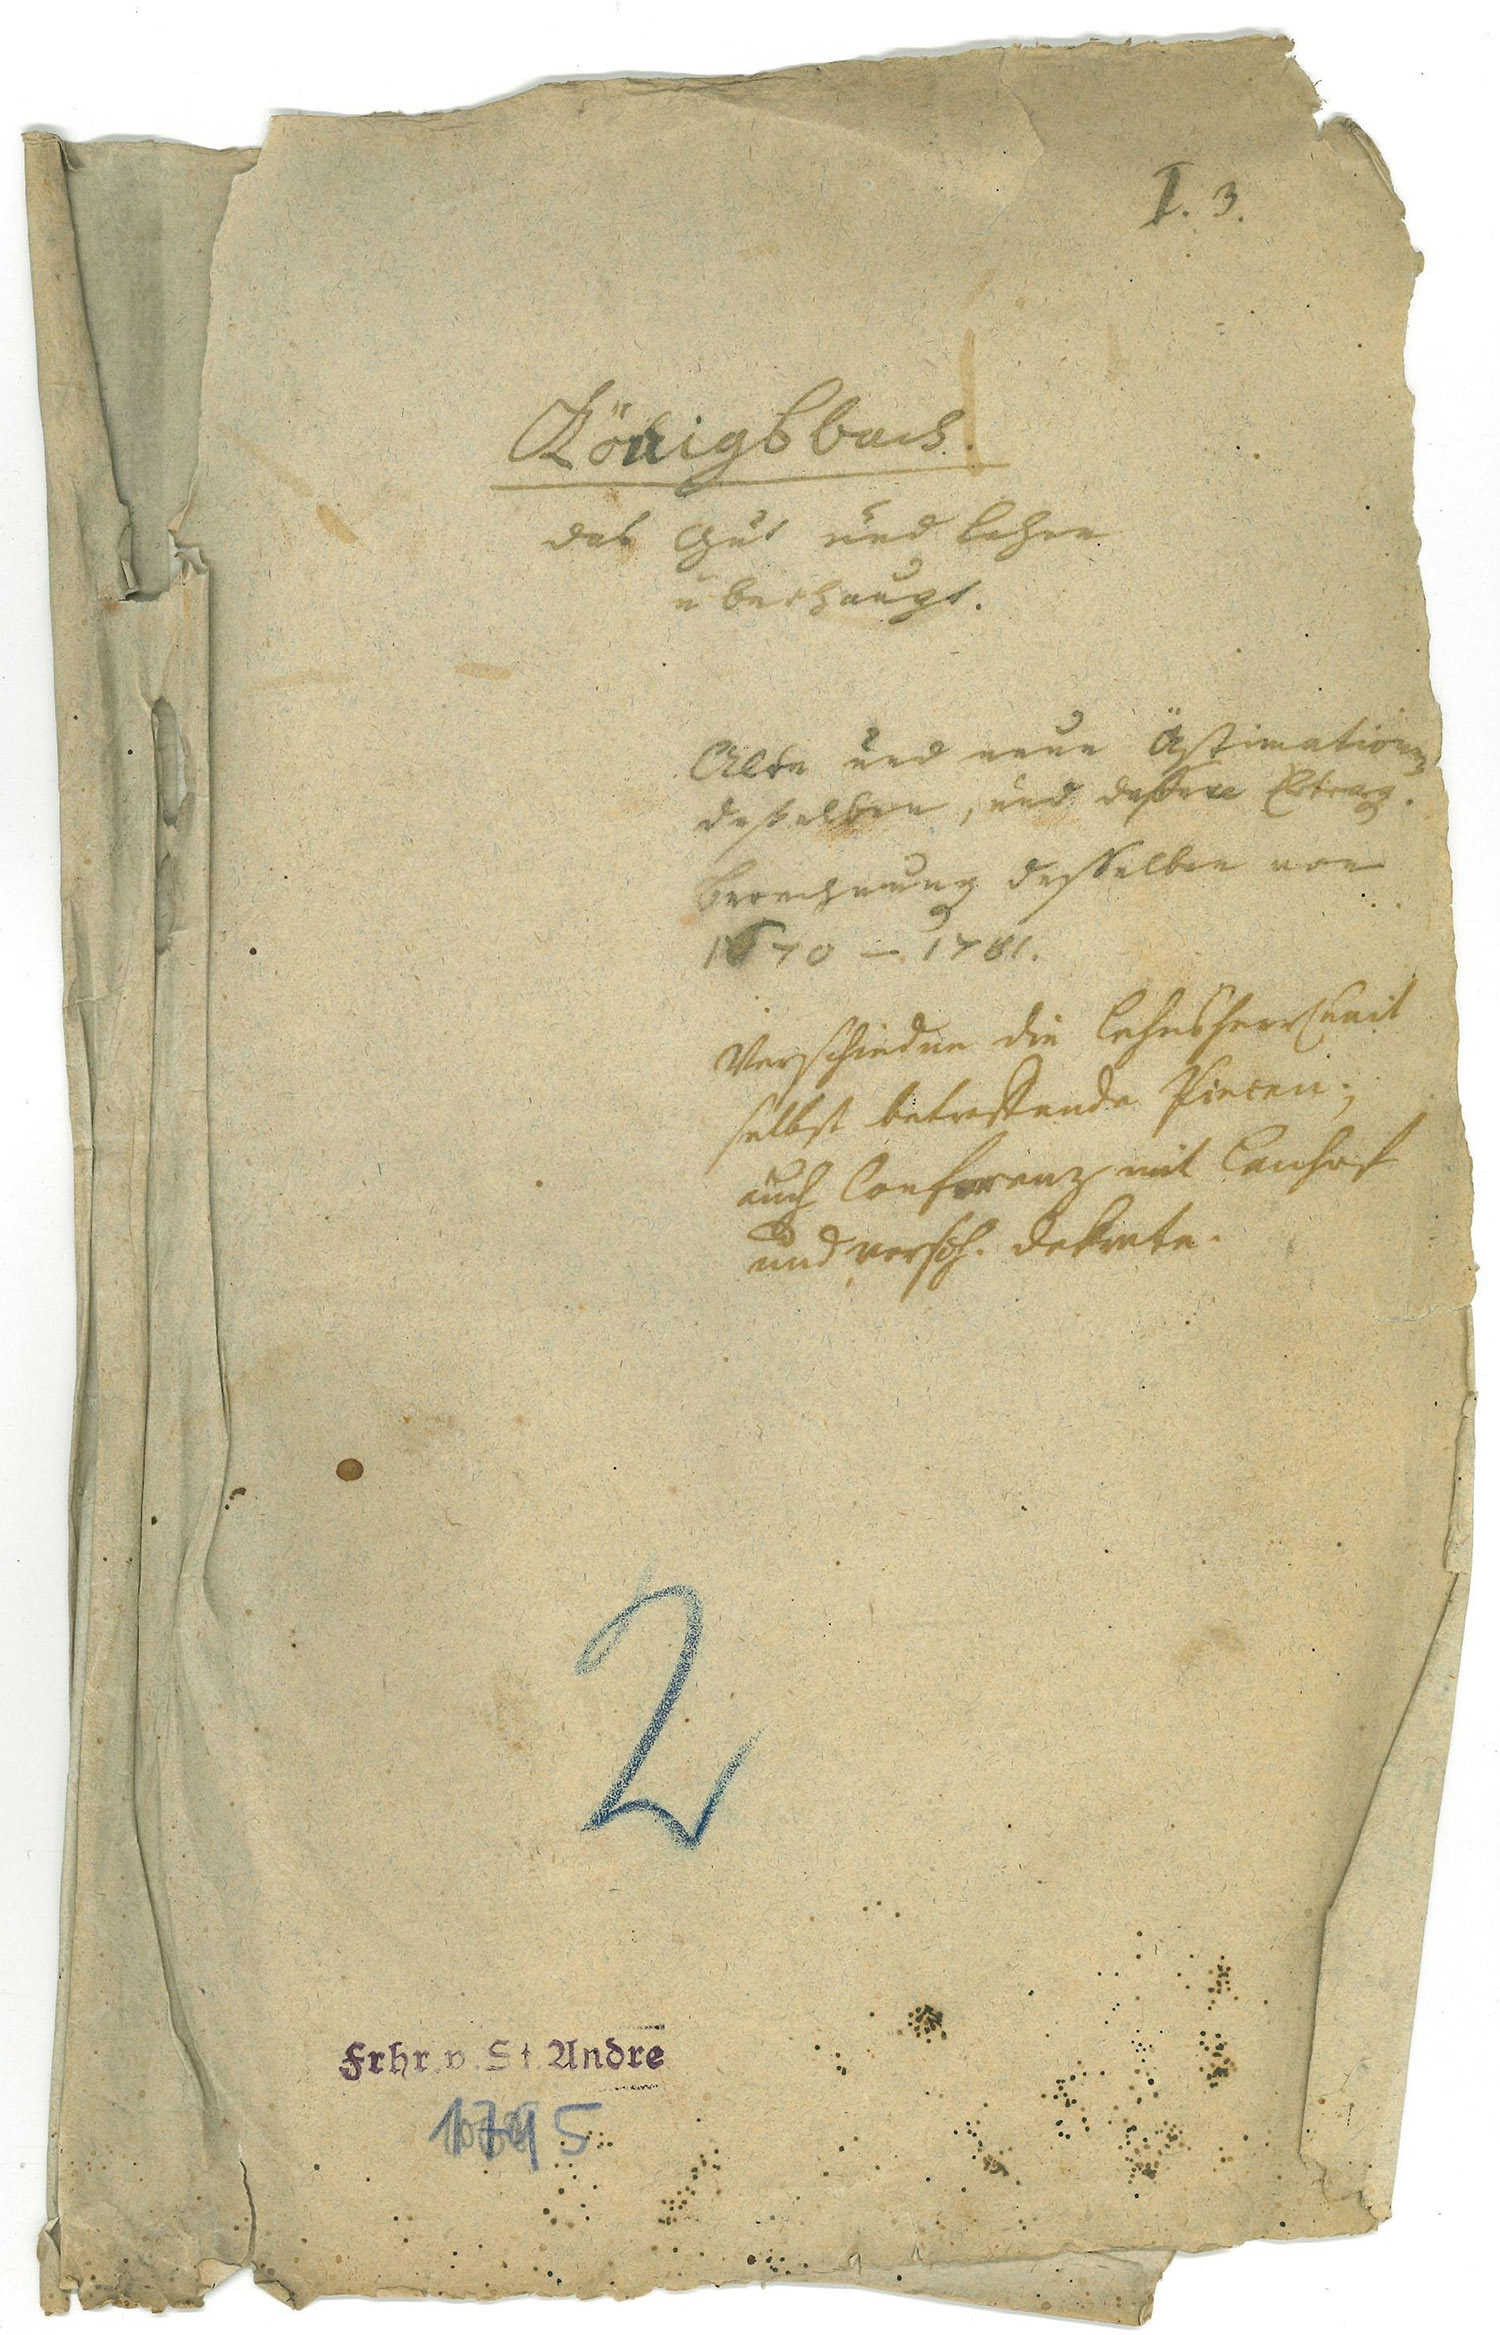 I. 3.
Königsbach.
das Gut und Lehen
überhaupt.
Alte und neue Ästimationen
desselben, und dessen Ertrag.
Berechnung desselben von
1670 – 1781.
Verschiedene die Lehnsherrlichkeit
selbst betreffende Piecen;
auch Conferenz mit
und versch. Dekrete.
2
Frhr. v. St. Andre